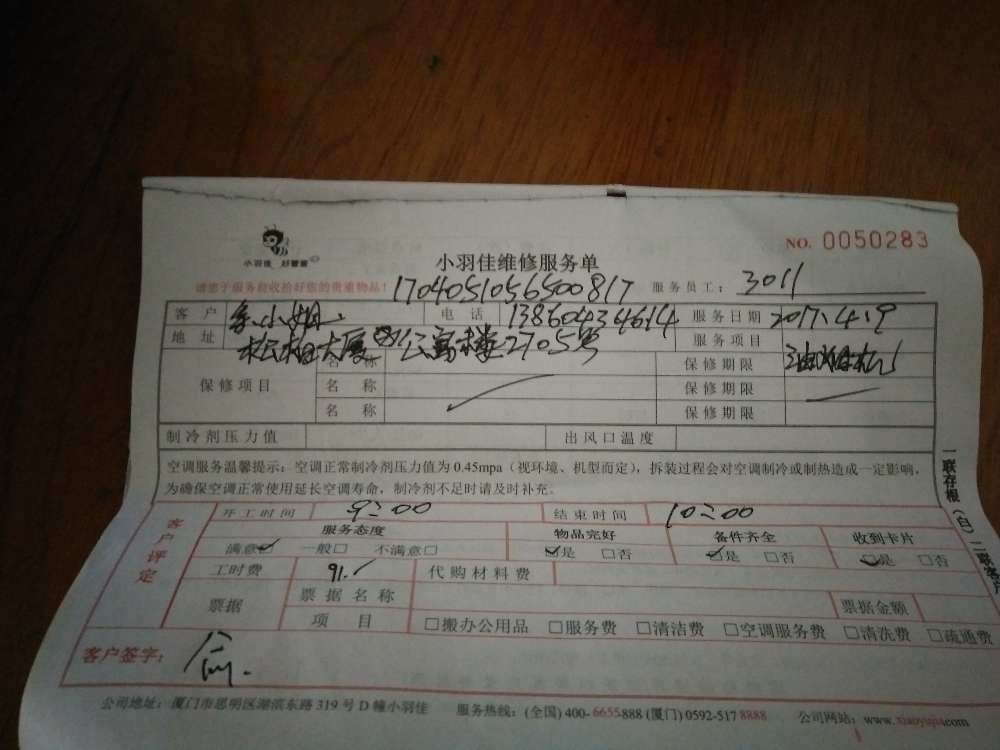 小羽佳 好管家
NO. 0050283
小羽佳维修服务单
请您于服务前收拾好您的贵重物品！ 1704051056500817 服务员工： 3011
客户 小姐 电话 13860434614 服务日期 2017.4.9
地址 松柏大厦 公寓楼2705室 服务项目 油烟机
保修项目 名称 保修期限
名称 保修期限
名称 保修期限
制冷剂压力值 出风口温度
空调服务温馨提示：空调正常制冷剂压力值为 0.45mpa（视环境、机型而定），拆装过程会对空调制冷或制热造成一定影响，
为确保空调正常使用延长空调寿命，制冷剂不足时请及时补充。
一联存根（白）二联客户
客户评定
开工时间 9:00 结束时间 10:00
服务态度 物品完好 备件齐全 收到卡片
满意☑ 一般□ 不满意□ ☑是 □否 ☑是 □否 ☑是 □否
工时费 91. 代购材料费
票据 票据名称 票据金额
项目 □搬办公用品 □服务费 □清洁费 □空调服务费 □清洗费 □疏通费
客户签字：
公司地址：厦门市思明区湖滨东路 319 号 D 幢小羽佳 服务热线：(全国) 400-6655888 (厦门) 0592-517 8888 公司网站：www.xiaoyujia.com